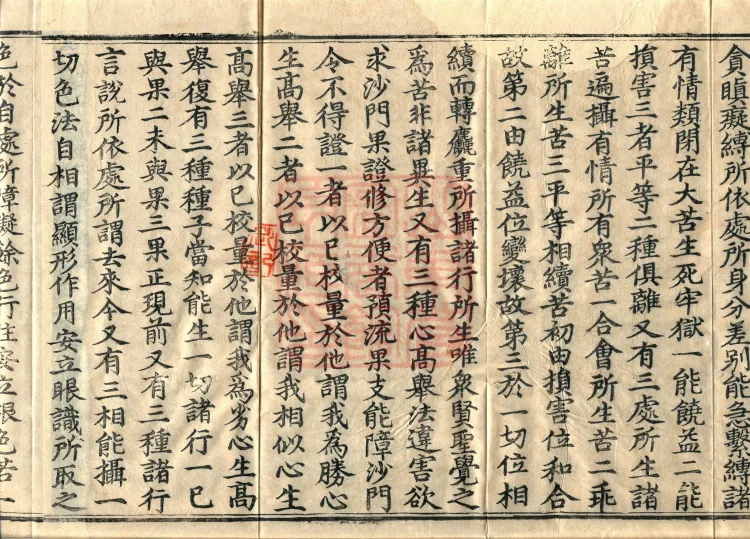 貪瞋癡縛所依處所身分差別能急繫縛諸
有情類閉在大苦生死牢獄一能饒益二能
損害三者平等二種俱離又有三處所生諸
苦遍攝有情所有眾苦一合會所生苦二乖
離所生苦三平等相續苦初由損害位和合
故第二由饒益位變壞故第三於一切位相
續而轉麤重所攝諸行所生唯眾賢聖覺之
為苦非諸異生又有三種心高舉法違害欲
求沙門果證修方便者預流果支能障沙門
令不得證一者以己校量於他謂我為勝心
生高舉二者以己校量於他謂我相似心生
高舉三者以己校量於他謂我為劣心生高
舉復有三種種子當知能生一切諸行一已
與果二未與果三果正現前又有三種諸行
言說所依處所謂去來今又有三相能攝一
切色法自相謂顯形作用安立眼識所取之
色於自處所障礙餘色行住安立眼色苦一